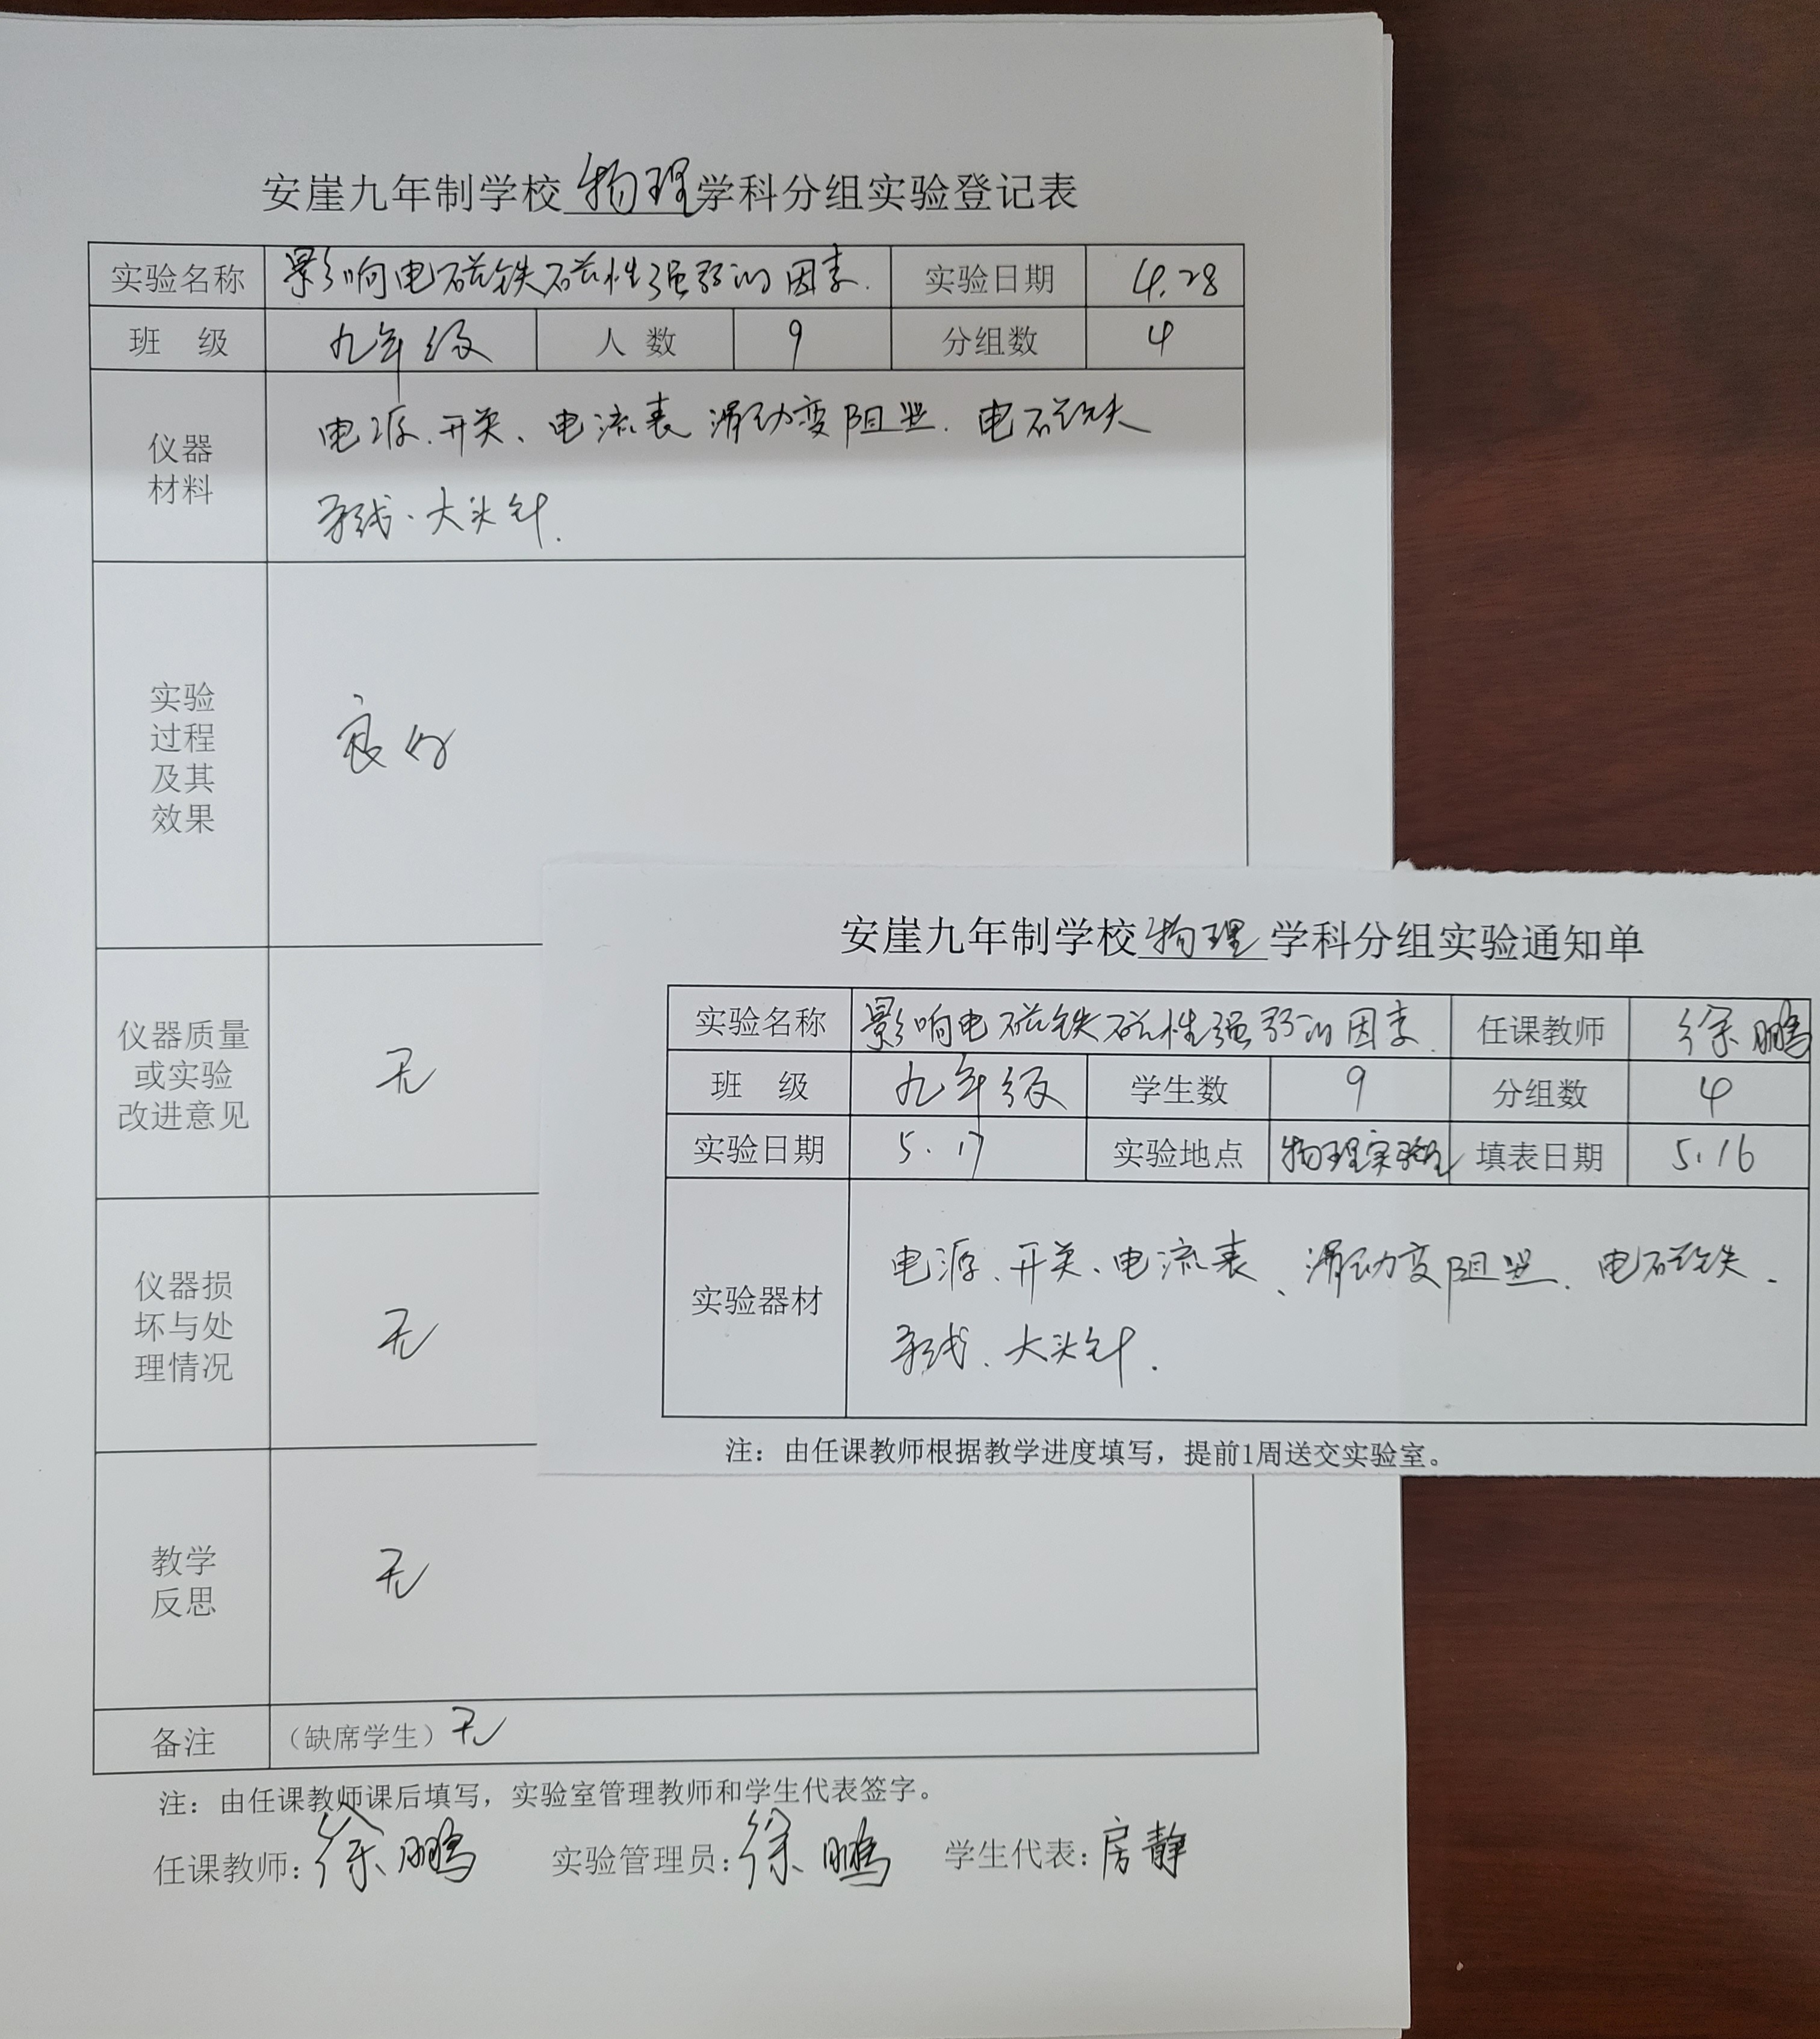 安崖九年制学校物理学科分组实验登记表
实验名称 影响电磁铁磁性强弱的因素. 实验日期 4.28
班 级 九年级 人 数 9 分组数 4
仪器
材料
电源、开关、电流表 滑动变阻器. 电磁铁
导线、大头针.
实验
过程
及其
效果
良好
仪器质量
或实验
改进意见
无
仪器损
坏与处
理情况
无
教学
反思
无
备注 (缺席学生) 无
注：由任课教师课后填写，实验室管理教师和学生代表签字。
任课教师: 徐鹏 实验管理员: 徐鹏 学生代表: 房静
安崖九年制学校物理学科分组实验通知单
实验名称 影响电磁铁磁性强弱的因素. 任课教师 徐鹏
班 级 九年级 学生数 9 分组数 4
实验日期 5.17 实验地点 物理实验室 填表日期 5.16
实验器材
电源、开关、电流表、滑动变阻器. 电磁铁.
导线、大头针.
注：由任课教师根据教学进度填写，提前1周送交实验室。